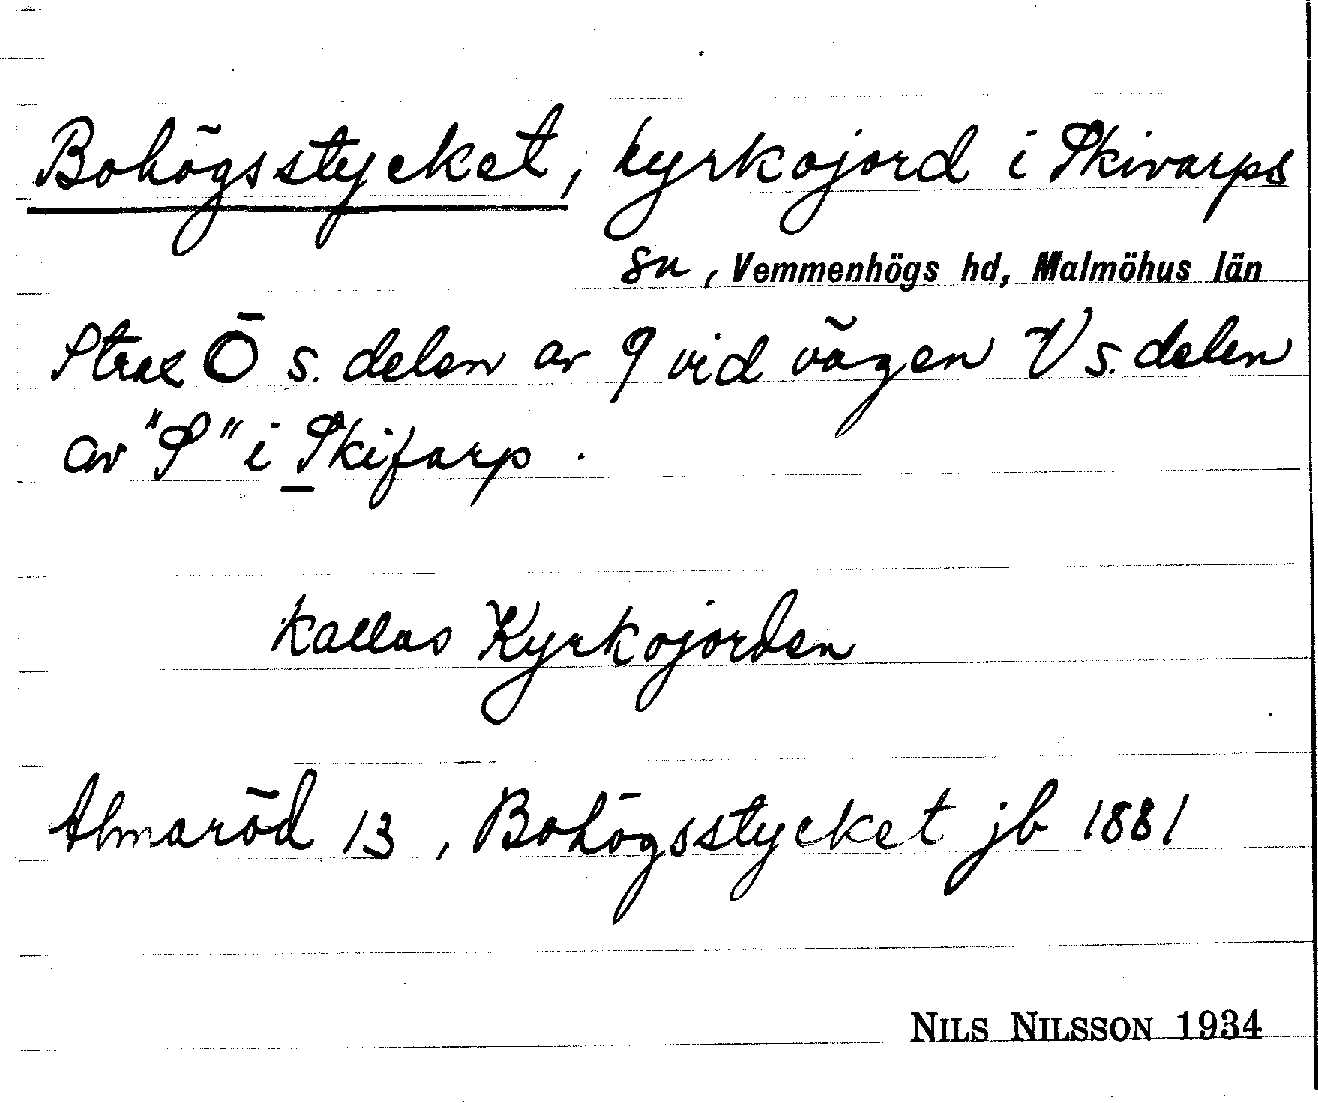 Bohögsstycket, kyrkojord i Skivarps
sn, Vemmenhögs hd, Malmöhus län
Strax Ö s. delen av 9 vid vägen V s. delen
av "S" i Skifarp.
Kallas Kyrkojorden
Almaröd 13, Bohögsstycket jb 1881
NILS NILSSON 1934